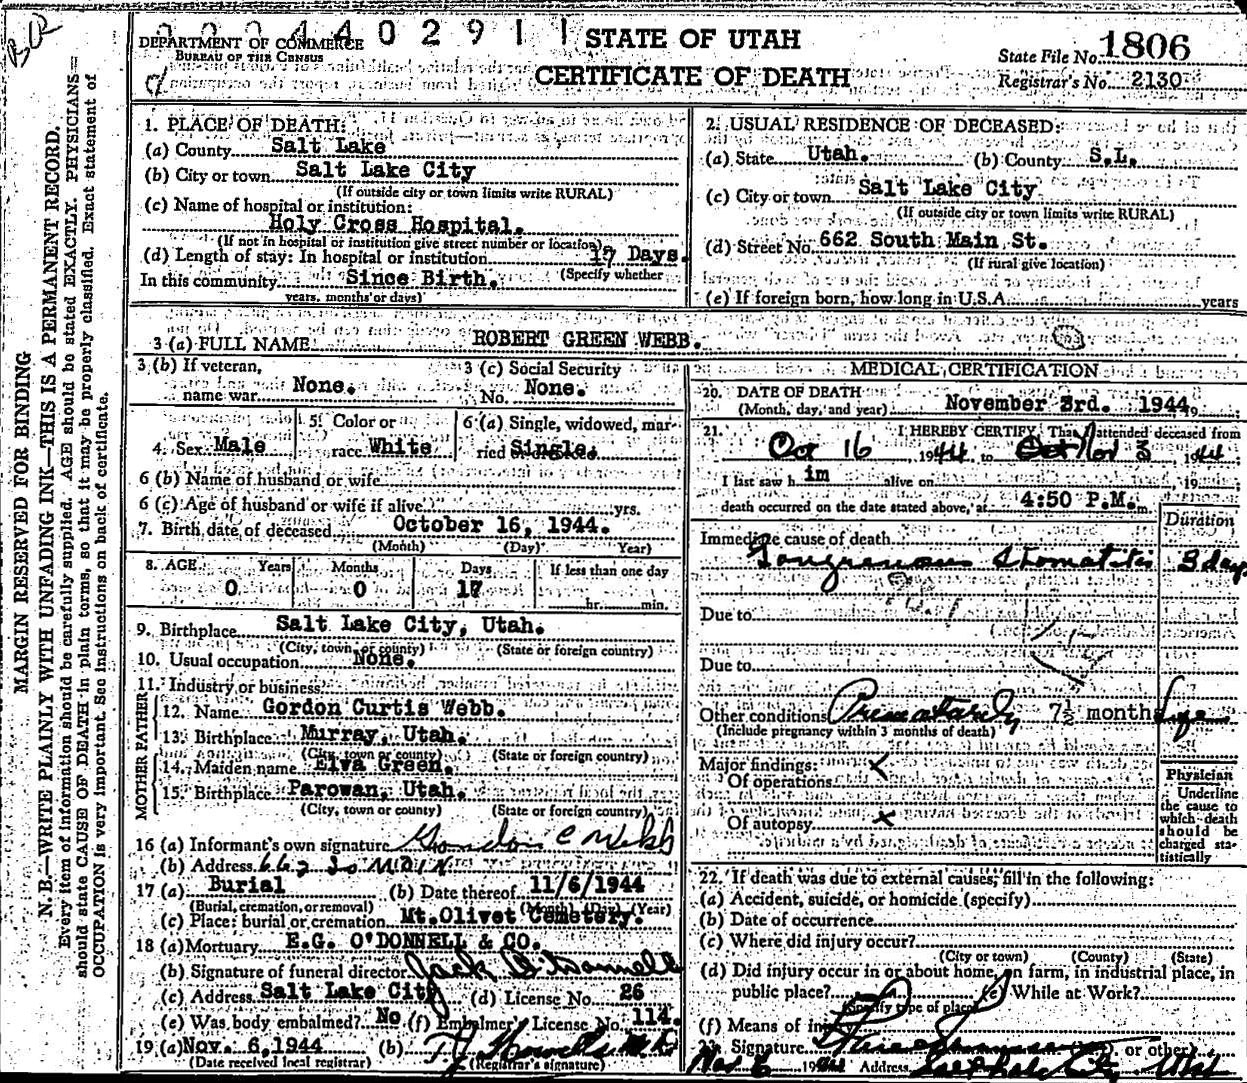 0004402911
DEPARTMENT OF COMMERCE
BUREAU OF THE CENSUS
STATE OF UTAH
CERTIFICATE OF DEATH
State File No. 1806
Registrar's No. 2130
MARGIN RESERVED FOR BINDING
N. B.—WRITE PLAINLY WITH UNFADING INK—THIS IS A PERMANENT RECORD.
Every item of information should be carefully supplied. AGE should be stated EXACTLY. PHYSICIANS—
should state CAUSE OF DEATH in plain terms, so that it may be properly classified. Exact statement of
OCCUPATION is very important. See instructions on back of certificate.
1. PLACE OF DEATH:
(a) County Salt Lake
(b) City or town Salt Lake City
(If outside city or town limits write RURAL)
(c) Name of hospital or institution:
Holy Cross Hospital.
(If not in hospital or institution give street number or location)
(d) Length of stay: In hospital or institution 17 Days.
(Specify whether
In this community Since Birth.
years, months or days)
2. USUAL RESIDENCE OF DECEASED:
(a) State Utah. (b) County S.L.
(c) City or town Salt Lake City
(If outside city or town limits write RURAL)
(d) Street No. 662 South Main St.
(If rural give location)
(e) If foreign born, how long in U.S.A. years
3 (a) FULL NAME ROBERT GREEN WEBB.
3 (b) If veteran,
name war None.
3 (c) Social Security
No. None.
4. Sex Male
5. Color or
race White
6 (a) Single, widowed, mar-
ried Single.
6 (b) Name of husband or wife
6 (c) Age of husband or wife if alive yrs.
7. Birth date of deceased October 16, 1944.
(Month) (Day) Year)
8. AGE Years Months Days If less than one day
0 0 17 hr. min.
9. Birthplace Salt Lake City, Utah.
(City, town, or county) (State or foreign country)
10. Usual occupation None.
11. Industry or business
MOTHER FATHER
12. Name Gordon Curtis Webb.
13. Birthplace Murray, Utah.
(City, town or county) (State or foreign country)
14. Maiden name Elva Green.
15. Birthplace Parowan, Utah.
(City, town or county) (State or foreign country)
16 (a) Informant's own signature Gordon C Webb
(b) Address 662 So Main
17 (a) Burial (b) Date thereof 11/6/1944
(Burial, cremation, or removal) (Month) (Day) (Year)
(c) Place: burial or cremation Mt. Olivet Cemetery.
18 (a) Mortuary E.G. O'DONNELL & CO.
(b) Signature of funeral director Jack O'Donnell
(c) Address Salt Lake City (d) License No. 26
(e) Was body embalmed? No (f) Embalmer's License No. 114.
19 (a) Nov. 6, 1944 (b)
(Date received local registrar) (Registrar's signature)
MEDICAL CERTIFICATION
20. DATE OF DEATH
(Month, day, and year) November 3rd. 1944
21. I HEREBY CERTIFY, That I attended deceased from
Oct 16, 1944 to Nov 3 1944
I last saw h im alive on 19
death occurred on the date stated above, at 4:50 P.M. m.
Duration
Immediate cause of death
Gangrenous Stomatitis 3 days
Due to
Due to
Other conditions Prematurely 7½ months
(Include pregnancy within 3 months of death)
Major findings:
Of operations
Of autopsy x
Physician
Underline
the cause to
which death
should be
charged sta-
tistically
22. If death was due to external causes, fill in the following:
(a) Accident, suicide, or homicide (specify)
(b) Date of occurrence
(c) Where did injury occur?
(City or town) (County) (State)
(d) Did injury occur in or about home, on farm, in industrial place, in
public place? (e) While at Work?
(Specify type of place)
(f) Means of injury
23. Signature or other)
Nov 6 1944 Address Salt Lake City Utah